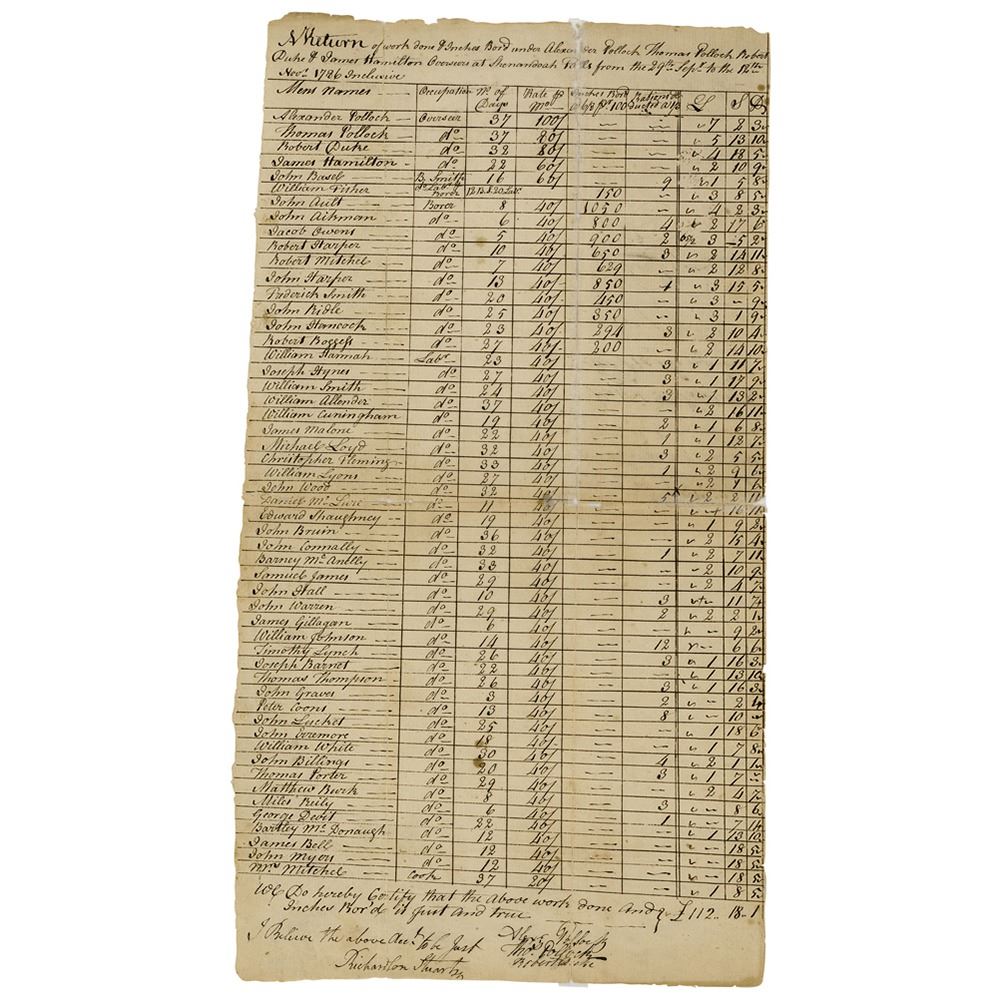 A Return of work done & Inches Bord under Alexander Pollock Thomas Pollock Robert
Duke & James Hamilton Overseers at Shenandoah Falls from the 29th Sept. to the 18th
Novr. 1786 Inclusive
Mens names Occupation No. of Days Rate pr Mo Inches Bord £ S D
Alexander Pollock Overseer 37 100/ — — 7 2 3
Thomas Pollock do 37 80/ — — 5 13 10
Robert Duke do 32 80/ — — 4 18 5
James Hamilton do 22 60/ — — 2 10 9
John Baseb B. Smith 16 60/ — 9 1 5 8
William Fisher Borer 150 — 3 8 5
John Ault Borer 8 40/ 1050 — 4 2 3
John Aikman do 6 40/ 800 4 2 17 6
Jacob Owens do 5 40/ 900 2 3 5 2
Robert Harper do 10 40/ 650 3 2 14 11
Robert Mitchel do 7 40/ 629 — 2 12 8
John Harper do 13 40/ 850 3 15 5
Frederick Smith do 20 40/ 450 — 3 — 9
John Ridle do 25 40/ 350 — 3 1 9
John Hancock do 23 40/ 294 3 2 10 4
Robert Boggess do 27 40/ 200 — 2 14 10
William Hannah Labr 23 40/ — 3 1 11 7
Joseph Hynes do 27 40/ — 3 1 17 9
William Smith do 24 40/ — 3 1 13 2
William Allender do 37 40/ — — 2 16 11
William Cuningham do 19 40/ — 2 1 6 8
James Malone do 22 40/ — 1 1 12 7
Michael Loyd do 32 40/ — 3 2 5 5
Christopher Fleming do 33 40/ — 1 2 9 6
William Lyons do 27 40/ — — 2 1 6
John Wood do 32 40/ — 5 2 2
Daniel Mc Lure do 11 40/ — — 16 11
Edward Shaughney do 19 40/ — — 1 9 2
John Bruin do 36 40/ — — 2 15 4
John Connally do 32 40/ — 1 2 7 11
Barney Mc Anelly do 33 40/ — — 2 10 9
Samuel James do 29 40/ — — 2 4 7
John Hall do 10 40/ — 3 — 11 7
John Warren do 29 40/ — 2 2 2 1
James Gillagan do 6 40/ — — — 9 2
William Johnson do 14 40/ — 12 — 6 6
Timothy Lynch do 26 40/ — 3 1 16 3
Joseph Barnet do 22 40/ — — 1 13 10
Thomas Thompson do 26 40/ — 3 1 16 3
John Graves do 3 40/ — 2 — 2
Peter Coons do 13 40/ — 8 — 10 —
John Luchet do 25 40/ — — 1 18 6
John do 18 40/ — — 1 7 8
William White do 30 40/ — 4 2 1 1
John Billings do 20 40/ — 3 1 7 —
Thomas Porter do 29 40/ — — 2 4 7
Matthew Burk do 8 40/ — 3 — 8 6
Miles Reily do 6 40/ — 1 — 7 11
George Devit do 22 40/ — — 1 13 10
Bartley Mc Donaugh do 12 40/ — — — 18 5
James Bell do 12 40/ — — — 18 5
John Myers do 12 40/ — — — 18 5
Mrs Mitchel Cook 37 20/ — — 1 8 5
We Do hereby Certify that the above work done and £112 18 1
Inches Bor'd is Just and true
I Believe the above Acct. to be Just
Thos. Pollock
Richardson Stuart